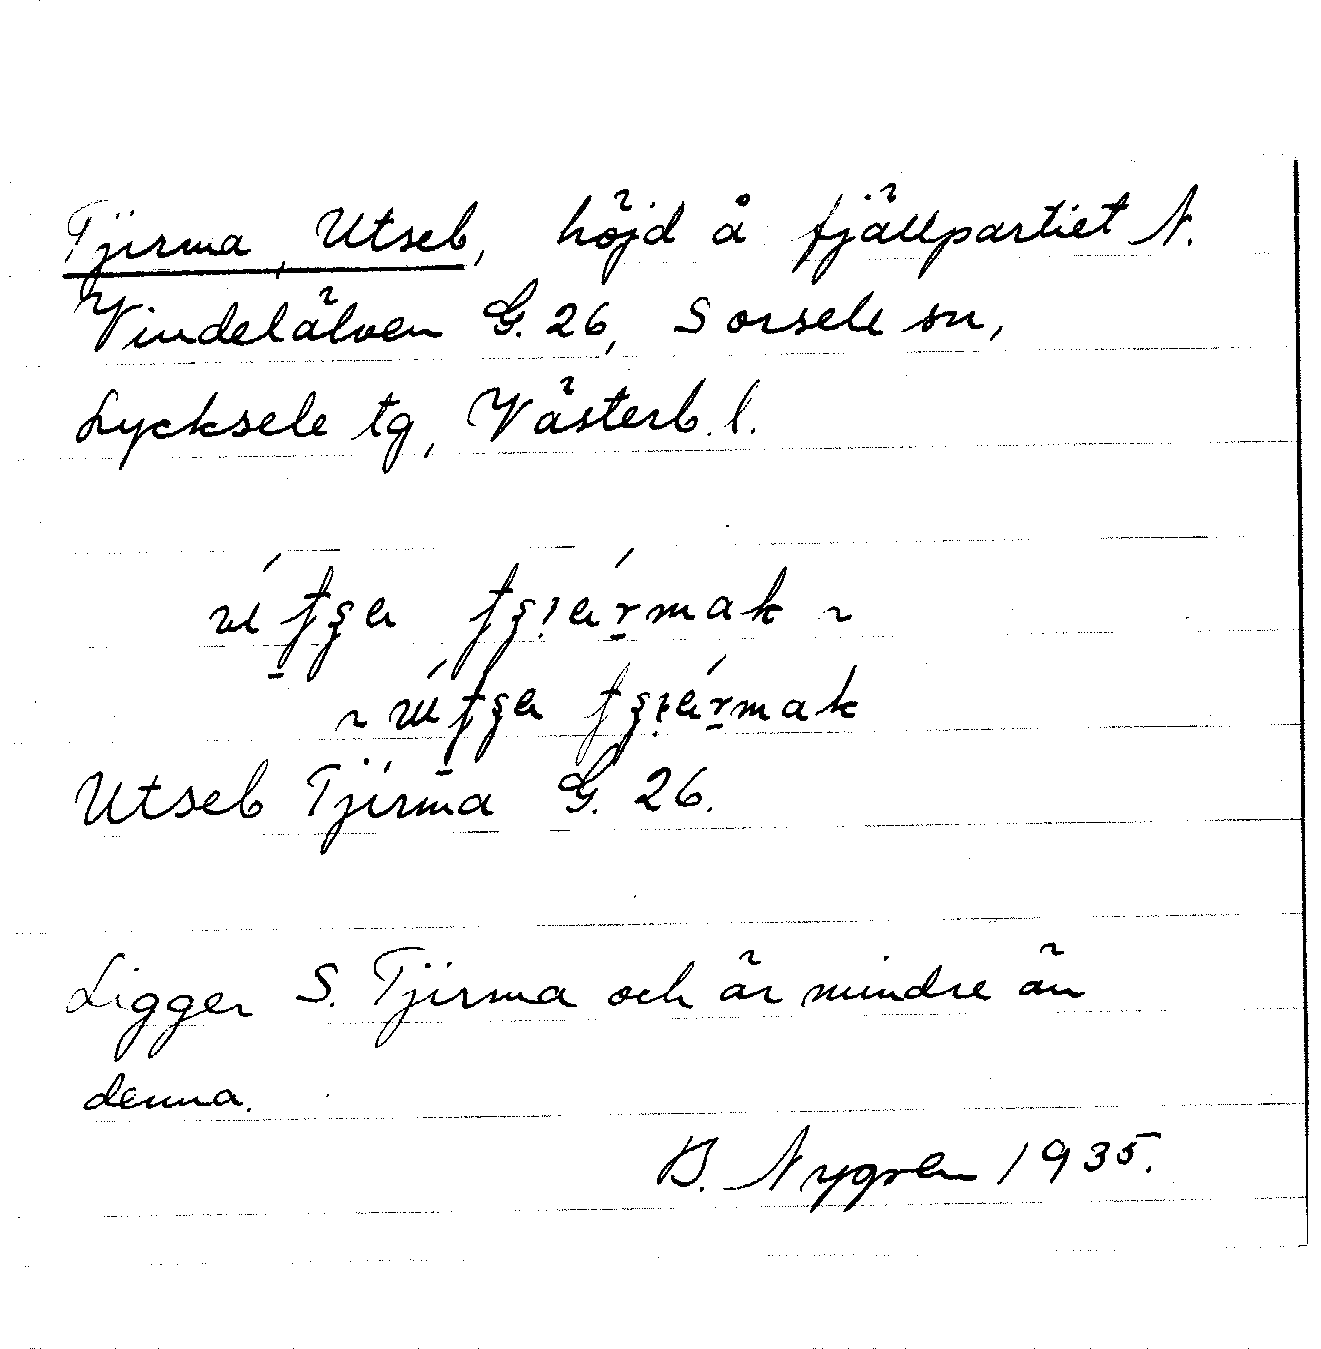 Tjirma, Utseb, höjd å fjällpartiet N.
Vindelälven G. 26, Sorsele sn,
Lycksele tg, Västerb. l.
Utseb Tjirma G. 26.
Ligger S. Tjirma och är mindre än
denna.
B. Nygren 1935.